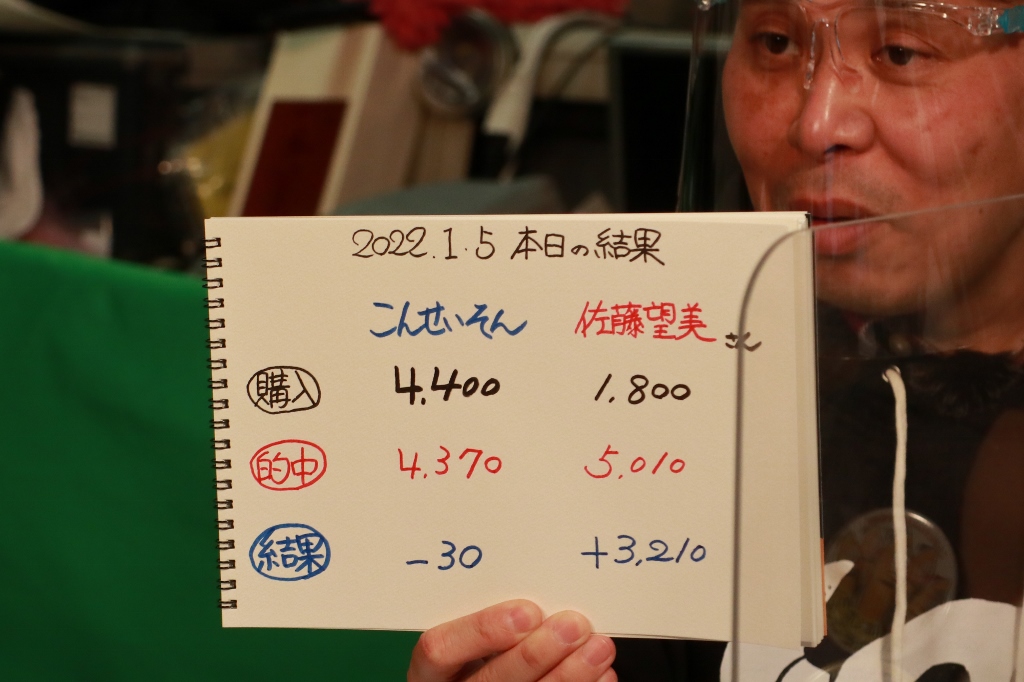 2022.1.5 本日の結果
こんせいそん 佐藤望美さん
購入 4.400 1.800
的中 4.370 5.010
結果 -30 +3,210